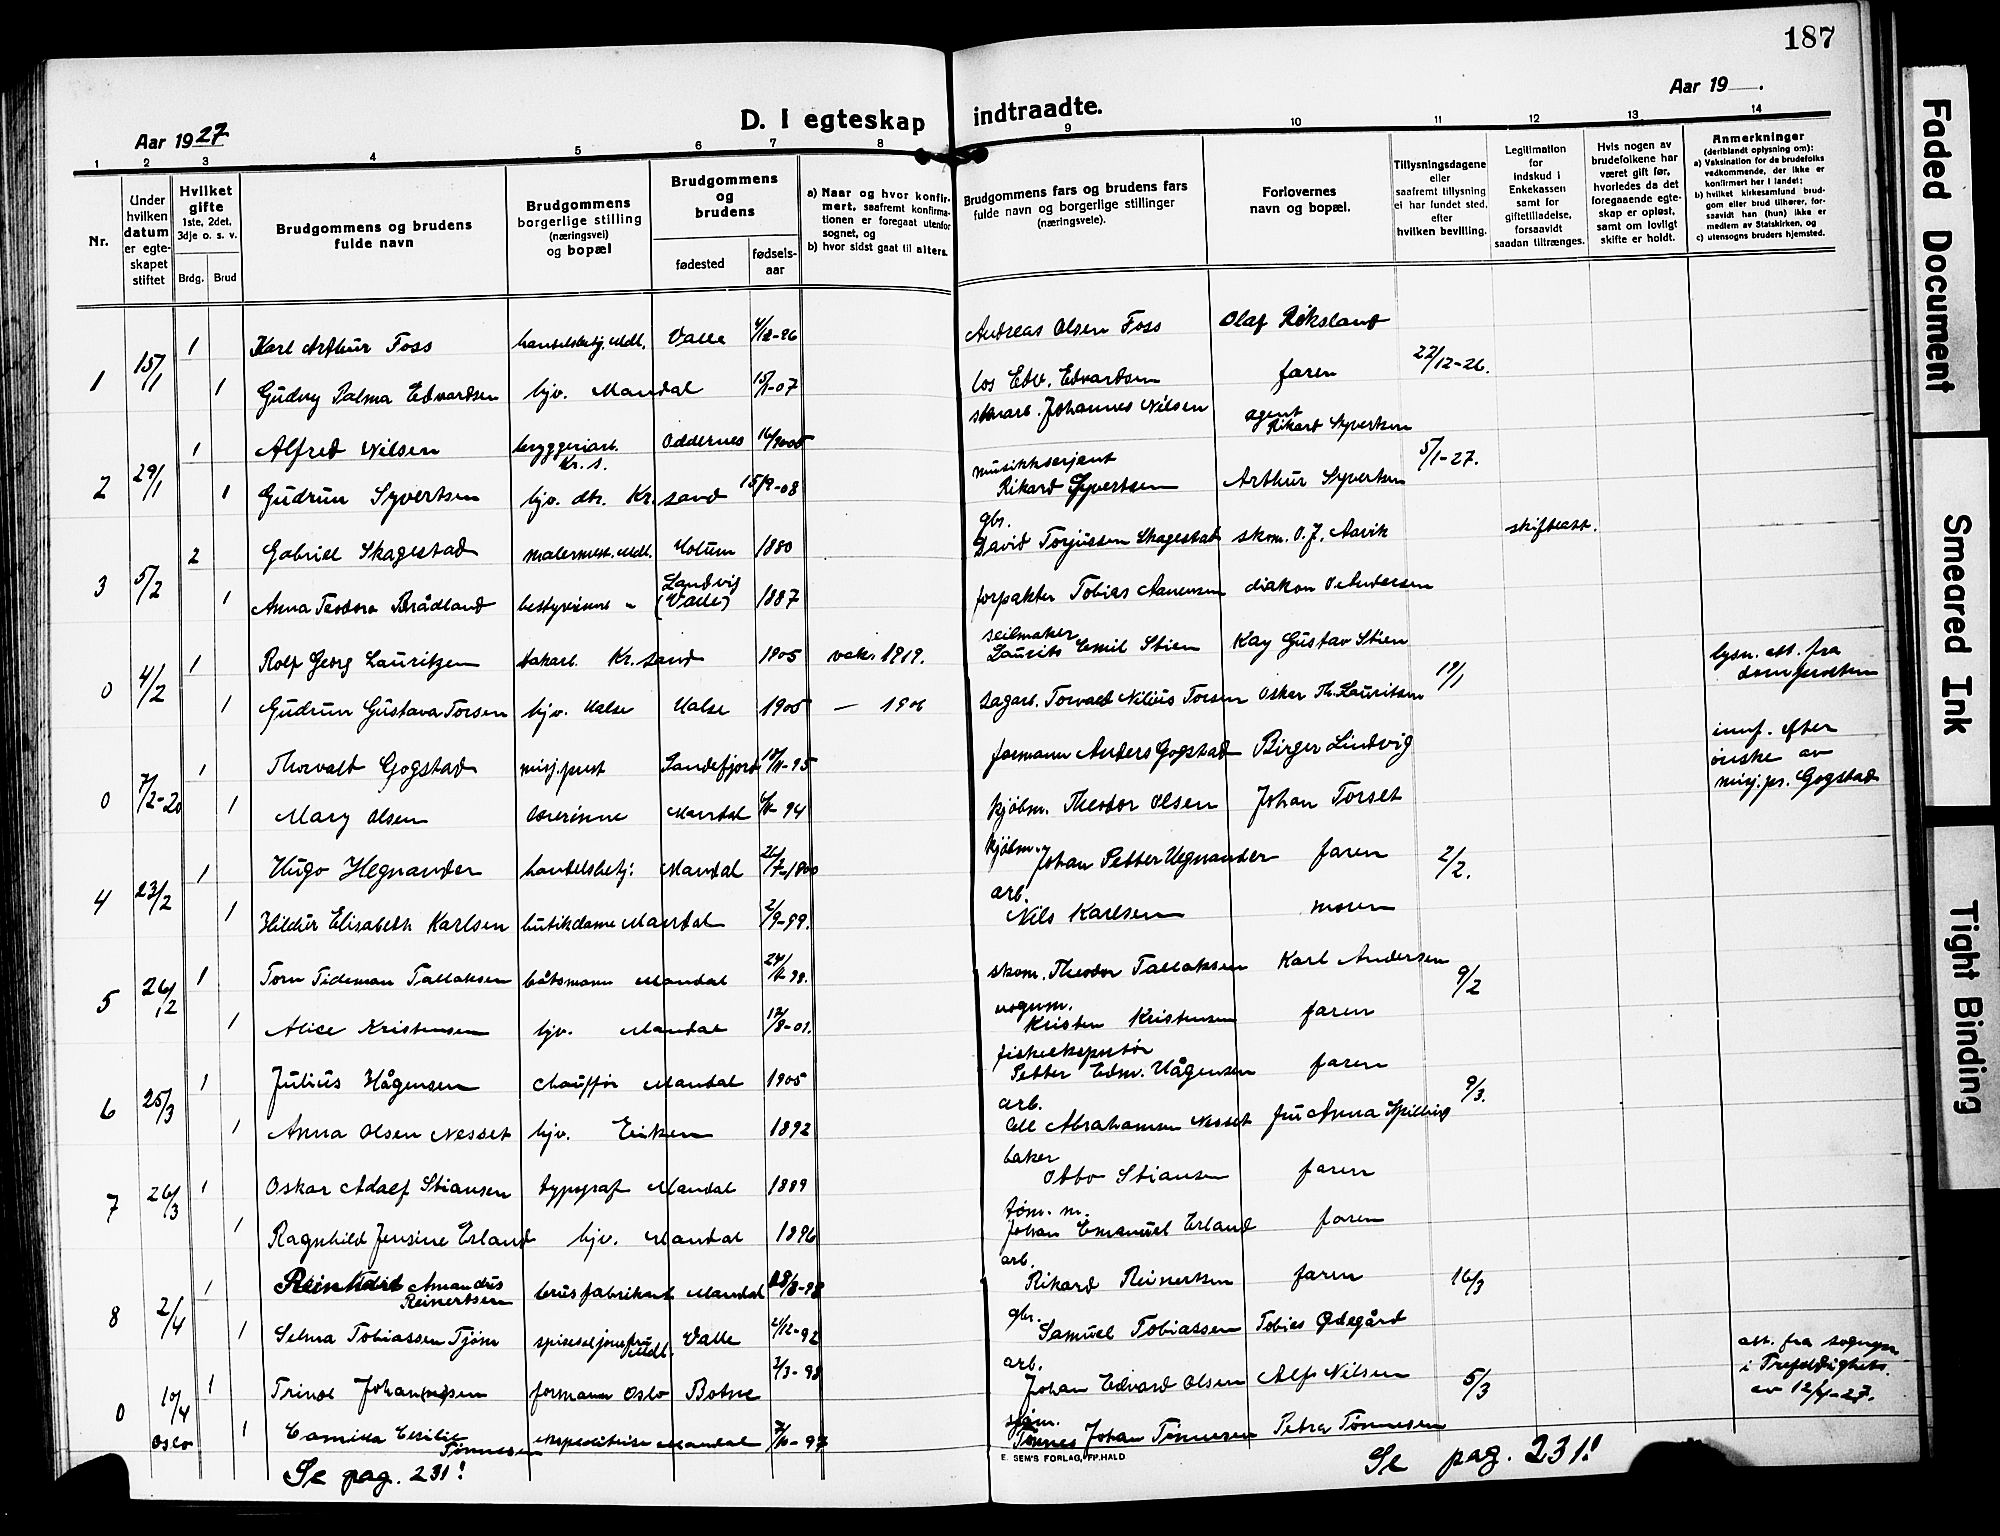 187
Aar 1927
D. I egteskap indtraadte.
Aar 19 .
1 2 3 4 5 6 7 8 9 10 11 12 13 14
Nr.
Under hvilken datum er egteskapet stiftet
Hvilket gifte
1ste, 2det, 3dje o. s. v.
Brdg. Brud
Brudgommens og brudens fulde navn
Brudgommens borgerlige stilling (næringsvei) og bopæl
Brudgommens og brudens
fødested
fødselsaar
a) Naar og hvor konfirmert, saafremt konfirmationen er foregaat utenfor sognet, og
b) hvor sidst gaat til alters.
Brudgommens fars og brudens fars fulde navn og borgerlige stillinger (næringsveie).
Forlovernes navn og bopæl.
Tillysningsdagene eller saafremt tillysning ei har fundet sted, efter hvilken bevilling.
Legitimation for indskud i Enkekassen samt for giftetilladelse, forsaavidt saadan tiltrænges.
Hvis nogen av brudefolkene har været gift før, hvorledes da det foregaaende egteskap er opløst, samt om lovligt skifte er holdt.
Anmerkninger
(deriblandt oplysning om):
a) Vaksination for de brudefolks vedkommende, der ikke er konfirmert her i landet;
b) hvilket kirkesamfund brudgom eller brud tilhører, forsaavidt han (hun) ikke er medlem av Statskirken, og
c) utensogns bruders hjemsted.
1 15/1 1 Karl Arthur Foss handelsbetj. Mdl. Valle Andreas Olsen Foss Olaf Röksland 22/12-26.
1 Gudny Palma Edvardsen hjv. Mandal 15/1-07 los Edv. Edvardsen faren
2 29/1 1 Alfred Nilsen bryggeriarb. Kr.s. Oddernes Johannes Nilsen agent Rikard Syvertsen 5/1-27.
1 Gudrun Syvertsen hjv. dtr. Kr.sand 15/9-08 musikksersjent Rikard Syvertsen Arthur Syvertsen
3 5/2 2 Gabriel Skagestad malermest. Mdl. Holum 1880 gbr. David Torjussen Skagestad skom. O. J. Aavik skifteatt.
1 Anna Teodora Brådland bestyrerinne " Landvig (Valle) 1887 forpakter Tobias Aanensen diakon O. Andersen
0 4/2 1 Rolf Georg Lauritzen Kr.sand 1905 vaks. 1919. seilmaker Laurits Emil Stien Kay Gustav Stien 19/1 lysn. att. fra domprosten
1 Gudrun Gustava Torsen hjv. Halse Halse 1905 — 1906 dagarb. Torvald Nilius Torsen Oskar Th. Lauritsen
0 7/2-20 1 Thorvald Gogstad misj.prest Sandefjord formann Anders Gogstad Birger Lindvig innf. efter ønske av misj.ps. Gogstad
1 Mary Olsen lærerinne Mandal kjøbm. Theodor Olsen Johan Torset
4 23/2 1 Hugo Hegnander handelsbetj. Mandal kjøbm. Johan Petter Hegnander faren 2/2.
1 Hildur Elisabeth Karlsen butikdame Mandal 2/9-99. arb. Nils Karlsen moren
5 26/2 1 Torv Tideman Tallaksen båtsmann Mandal skom. Theodor Tallaksen Karl Andersen 9/2
1 Alice Kristensen hjv. Mandal vognm. Kristen Kristensen faren
6 25/3 1 Julius Hågensen chauffør Mandal 1905 fiskeeksportør Petter Edm. Hågensen faren 9/3.
1 Anna Olsen Nesset hjv. Eiken 1892 arb. Abrahamsen Nesset fru Anna Spilling
7 26/3 1 Oskar Adolf Stiansen typograf Mandal 1889 baker Otto Stiansen faren
1 Ragnhild Jensine Erland hjv. Mandal 1896 tøm. m. Johan Emanuel Erland faren
8 2/4 1 Reinhard Amandus Reinertsen brusfabrikant Mandal arb. Rikard Reinertsen faren 16/3
1 Selma Tobiassen Tjöm Mdl. Valle 2/12-92 gbr. Samuel Tobiassen Tobias Ødegård
0 10/4 Oslo 1 Trinol Johan(ne)sen formann Oslo Botne 2/3-98 arb. Johan Edvard Olsen Alf Nilsen 5/3 att. fra sogneps. i Trefoldighets. av 12/4-27.
1 Camilla Cecilie Tønnesen ekspeditrise Mandal sjøm. Tønnes Johan Tønnesen Petra Tønnesen
Se pag. 231!
Se pag. 231!
E. SEM'S FORLAG, FR.HALD
Faded Document
Smeared Ink
Tight Binding